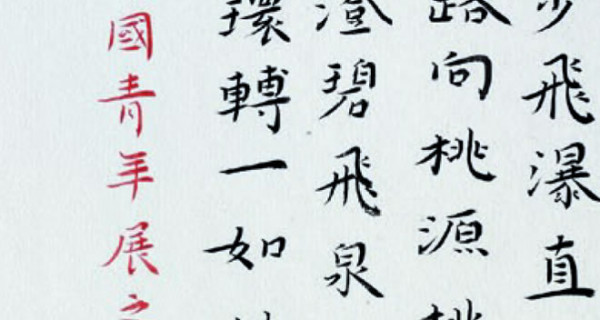 步飛瀑直
路向桃源桃
澄碧飛泉
環轉一如
國青年展之